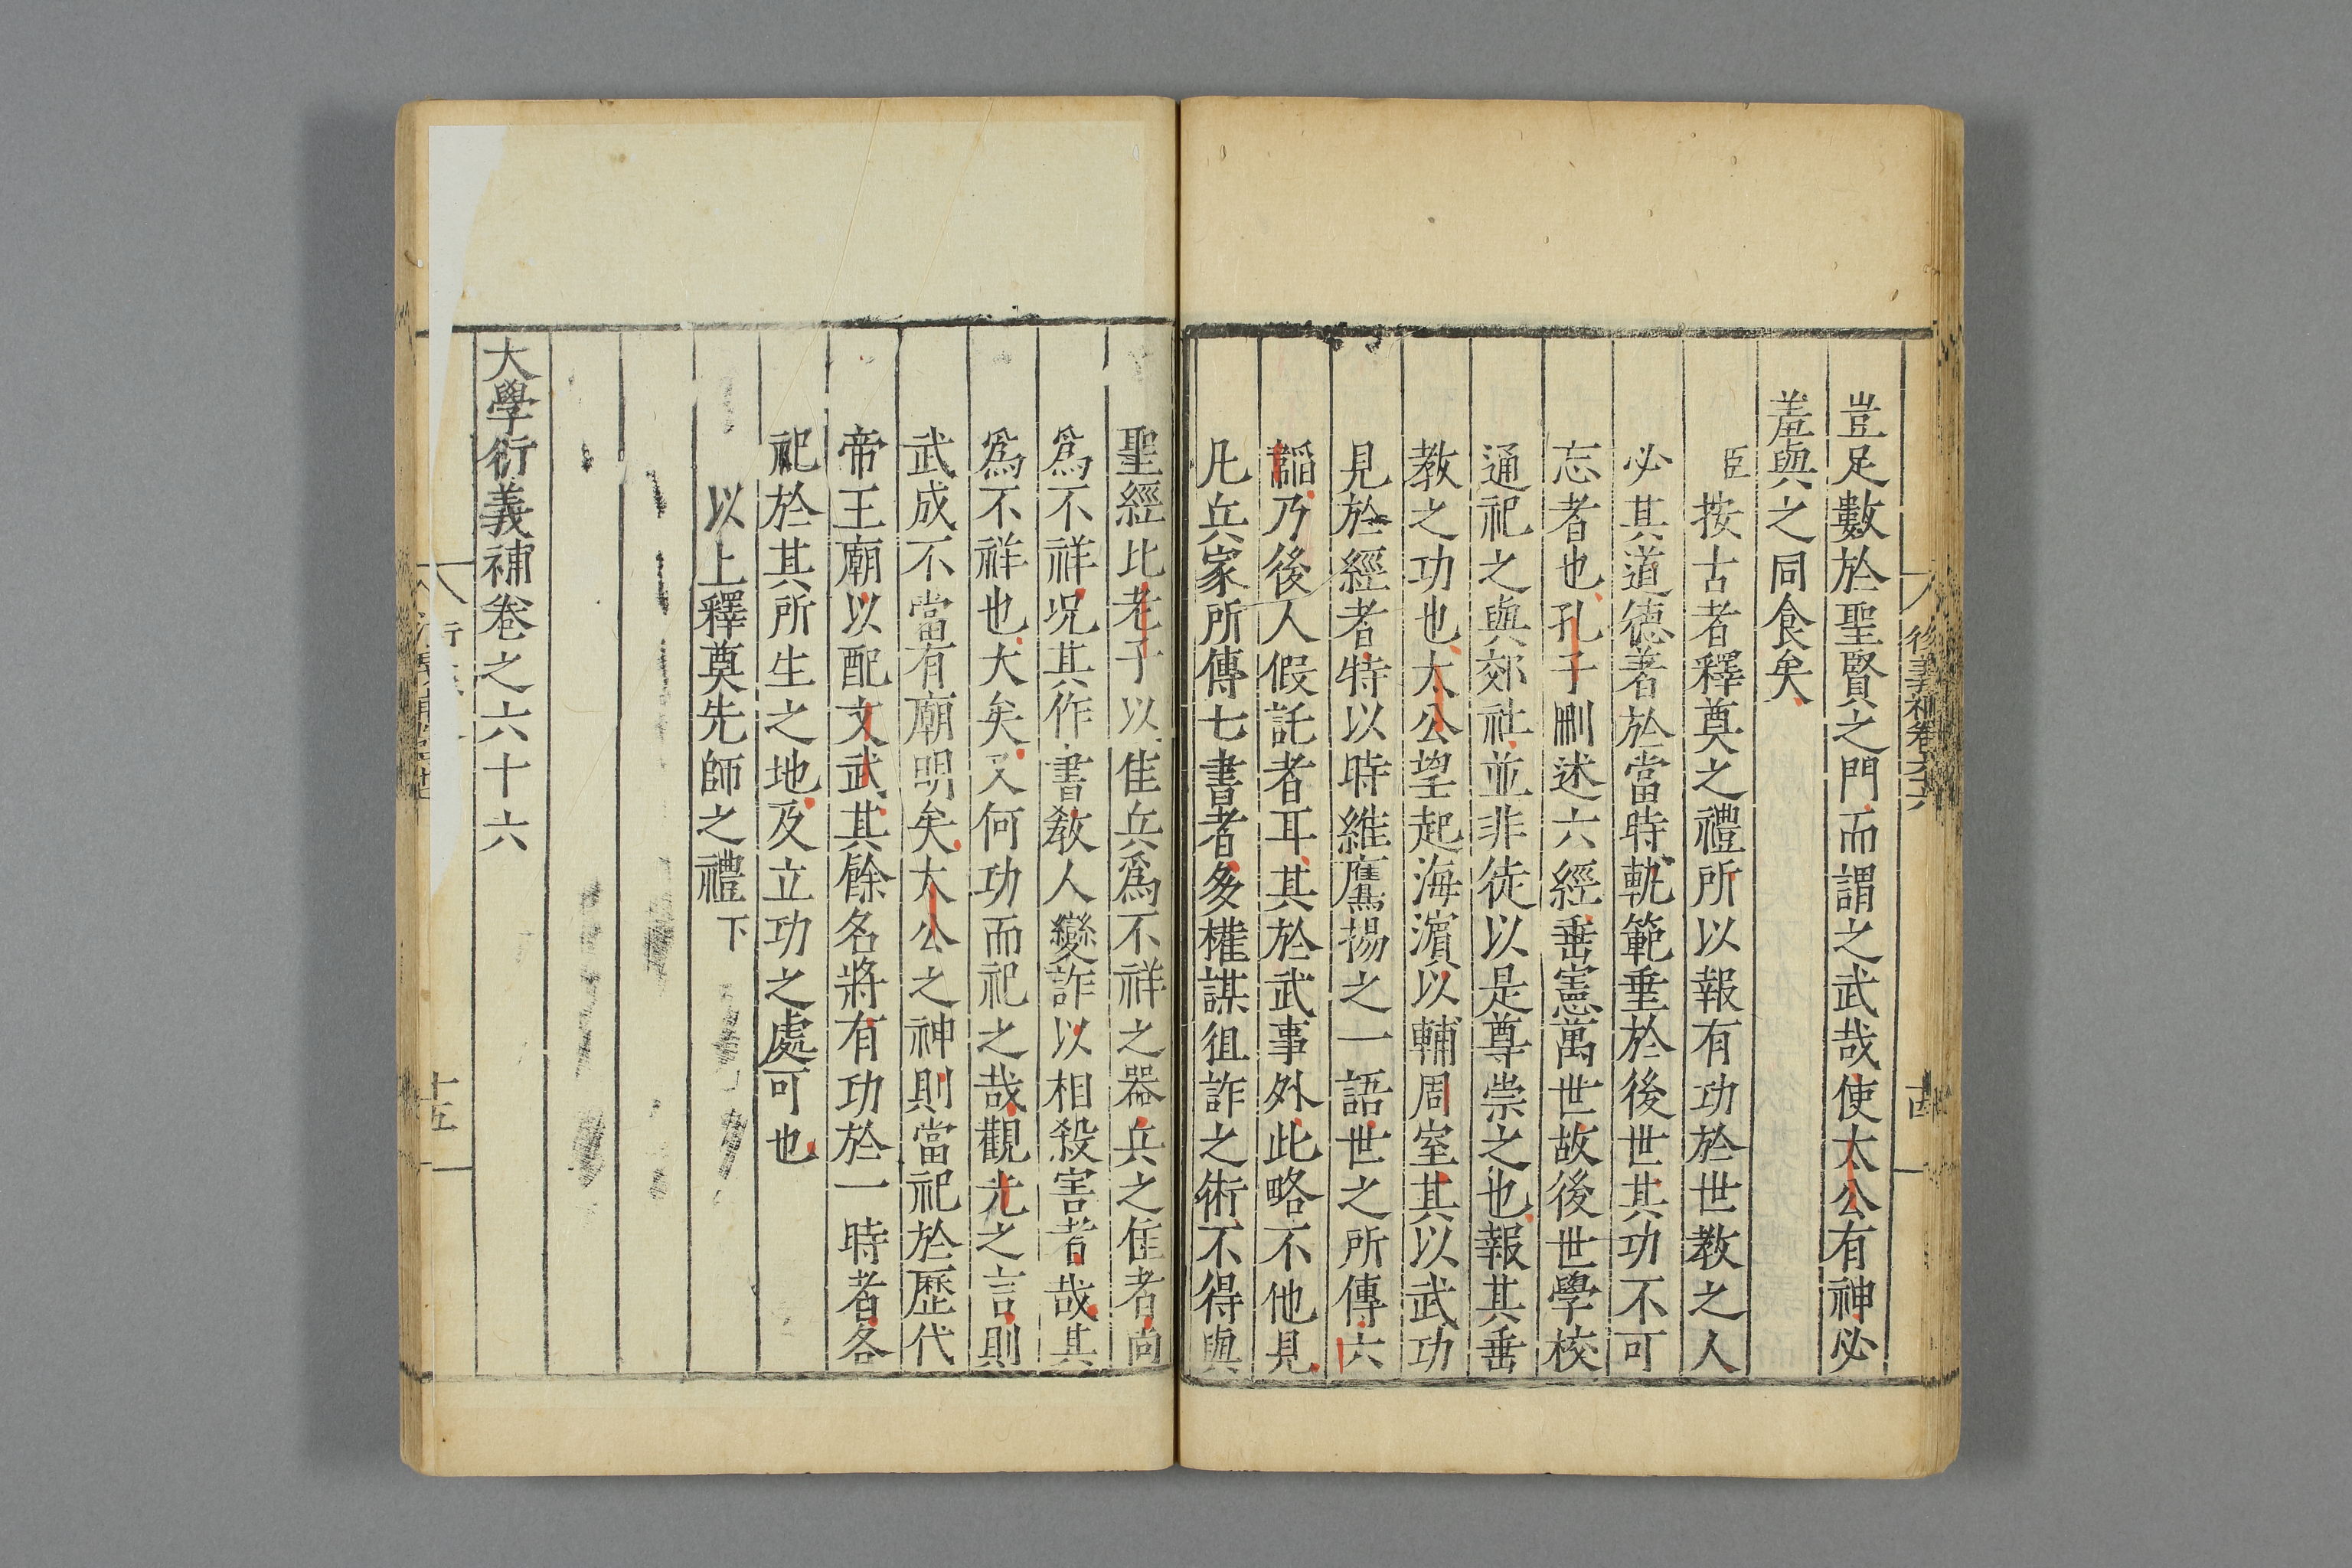 豈足數於聖賢之門而謂之武哉使太公有神必
羞與之同食矣
臣按古者釋奠之禮所以報有功於世教之人
必其道德著於當時軌範垂於後世其功不可
忘者也孔子刪述六經垂憲萬世故後世學校
通祀之與郊社並非徒以是尊崇之也報其垂
教之功也太公望起海濵以輔周室其以武功
見於經者特以時維鷹揚之一語世之所傳六
韜乃後人假託者耳其於武事外此略不他見
凡兵家所傳七書者多權謀徂詐之術不得與
聖經比老子以隹兵爲不祥之器兵之隹者尚
爲不祥况其作書教人變詐以相殺害者哉其
爲不祥也大矣又何功而祀之哉觀尤之言則
武成不當有廟明矣太公之神則當祀於歷代
帝王廟以配文武其餘名將有功於一時者各
祀於其所生之地及立功之處可也
以上釋奠先師之禮下
大學衍義補卷之六十六
十五